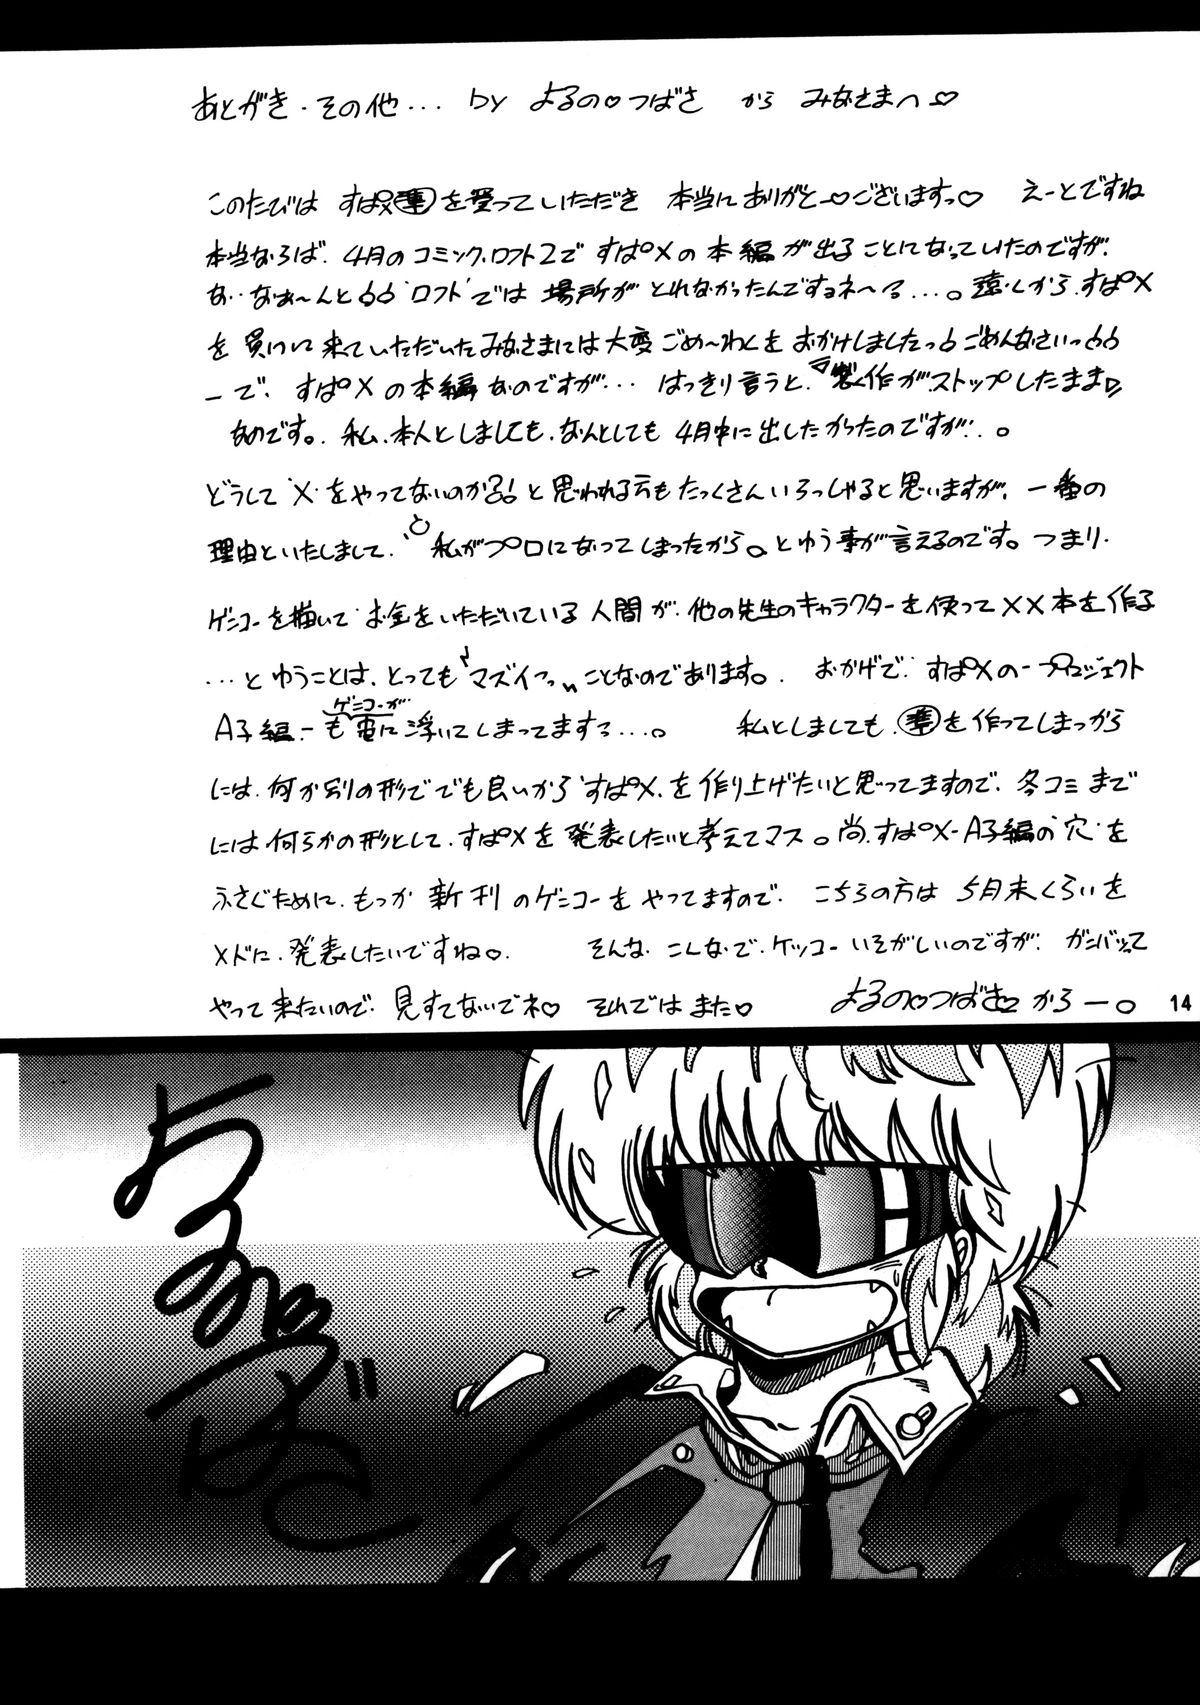 あとがき・その他... by よるの♡つばさ から みなさまへ♡
このたびは すぱX準を買っていただき 本当に ありがと〜♡ございますっ♡ えーとですね
本当ならば、4月のコミック・ロフト2で すぱ°Xの本編が出ることになっていたのですが、
な、なぁ〜んと66 "ロフト"では 場所が とれなかったんですョネ〜る...。遠くから、すぱ°X
を 買いに 来ていただいたみなさまには 大変 ごめ〜わくを おかけしましたっ6 ごめんなさいっ66
ーで、すぱ°Xの本編なのですが... はっきり言うと、製作がストップしたまま
なのです。私、本人としましても、なんとしても 4月中に出したかったのですが...。
どうして"X"をやってないのか?! と思われる方もたっくさんいらっしゃると思いますが、一番の
理由といたしまして、"私がプロになってしまったから。"とゆう事が言えるのです。つまり、
ゲンコーを描いて お金をいただいている 人間が、他の先生のキャラクターを使って XX本を作る
...と ゆうことは、とっても "マズイっ" ことなのであります。 おかげで、すぱ°Xの一プロジェクト
A子編ー ゲンコーが も宙に 浮いてしまってますっ...。 私としましても、準を作ってしまっから
には、何か別の形ででも良いから"すぱ°X"を作り上げたいと思ってますので、冬コミまで
には何らかの形として、すぱ°Xを 発表したいと考えてマス。尚、すぱ°X-A子編の"穴"を
ふさぐために、もっか 新刊のゲンコーをやってますので、こちらの方は 5月末くらいを
メドに、発表したいですね。 そんな こんなで、ケッコー いそがしいのですが、ガンバッて
やって来たいので、見すてないでネ♡ それでは また♡ よるの♡つばさ から ー。
14
よるの
つばさ